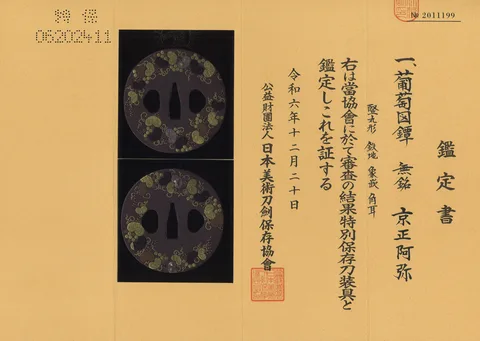 № 2011199
鑑定書
一、葡萄図鐔 無銘 京正阿弥
竪丸形 鉄地 象嵌 角耳
右は當協會に於て審査の結果特別保存刀装具と
鑑定しこれを証する
令和六年十二月二十日
公益財團法人 日本美術刀劍保存協會
特保
06202411